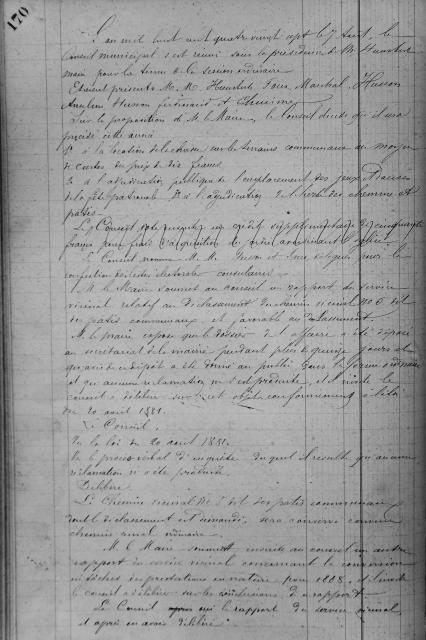 170
L'an mil huit cent quatre vingt sept le 7 Août, le
Conseil municipal s'est réuni sous la présidence de M.
maire pour la tenue de la session ordinaire
Etaient présents M. M. Marchal, Husson
Husson Ferdinand et
Sur la proposition de M. le Maire, le Conseil décide qu'il sera
procédé cette année
1° à la location de la chasse sur les terrains communaux au moyen
de cartes du prix de dix francs
2° à l'adjudication publique de l'emplacement des jeux et danses
de la fête patronale 3° à l'adjudication de l'herbe des chemins et
patis
Le Conseil vote un crédit supplémentaire de cinquante
francs pour frais d'acquisition de
Le Conseil nomme M. M. Husson et délégués pour la
confection des listes électorales consulaires
M. le Maire soumet au conseil un rapport du service
vicinal relatif au déclassement du chemin vicinal No 5 dit
des patis communaux et favorable au déclassement
M. le maire expose que le dossier de l'affaire a été déposé
au secrétariat de la mairie pendant plus de quinze jours et
qu'avis de ce dépôt a été donné au public dans la forme ordinaire
et qu'aucune réclamation ne s'est produite, et il invite le
conseil à délibérer sur cet objet conformément à la loi
du 20 août 1881.
Le Conseil,
Vu la loi du 20 août 1881.
Vu le procès verbal d'enquête duquel il résulte qu'aucune
réclamation n'a été produite
Délibère
Le Chemin vicinal No 5 dit des patis communaux
dont le déclassement est demandé, sera conservé comme
chemin rural ordinaire.
M. le Maire soumet ensuite au conseil un autre
rapport du service vicinal concernant la conversion
en tâches des prestations en nature pour 1888, et invite
le conseil à délibérer sur les conclusions de ce rapport
Le Conseil après ouï le rapport du service vicinal
et après en avoir délibéré